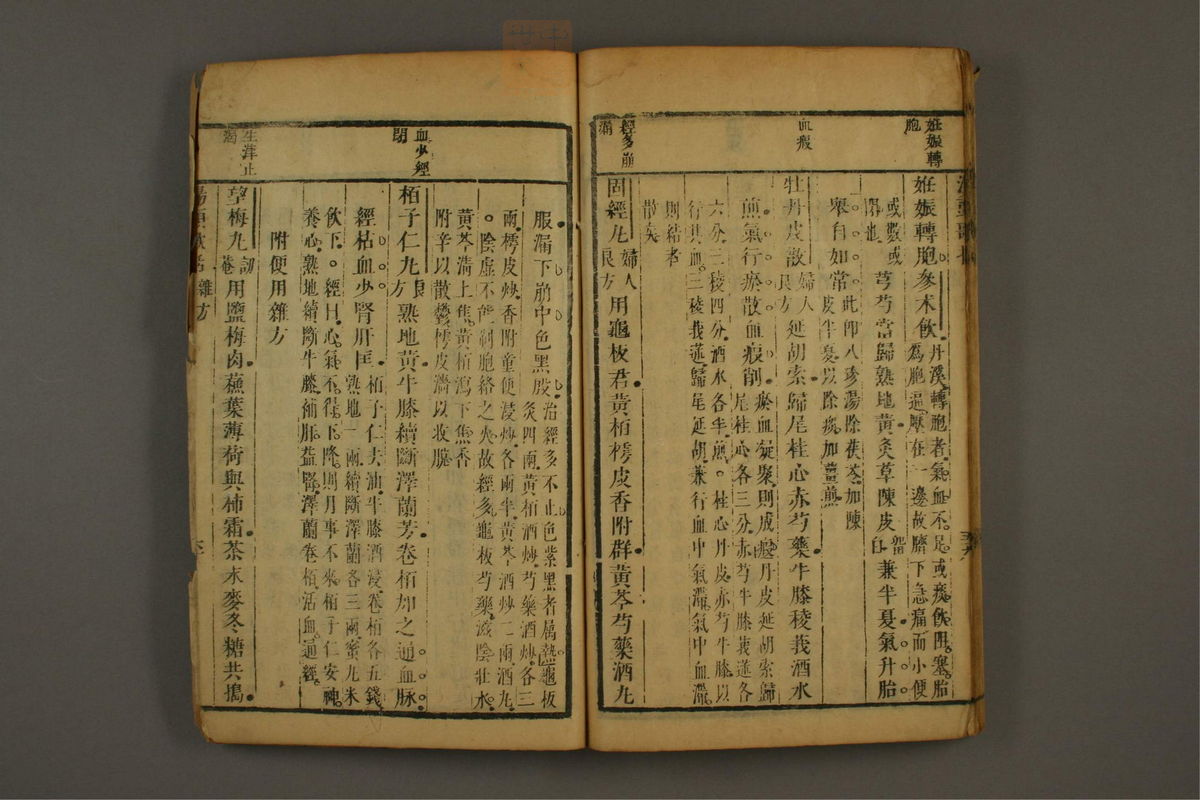 妊娠轉胞
妊娠轉胞參朮飲丹溪轉胞者氣血不足或痰飲阻塞胎
爲胞逼壓在一邊故臍下急痛而小便
或數或閉也
芎芍當歸熟地黃炙草陳皮留白兼半夏氣升胎
舉自如常此卽八珍湯除茯苓加陳皮半夏以除痰加薑煎
血瘕
牡丹皮散婦人良方延胡索歸尾桂心赤芍藥牛膝稜莪酒水
煎氣行瘀散血瘕削瘀血凝聚則成瘕丹皮延胡索歸
尾桂心各三分赤芍牛膝莪蒁各
六分三稜四分酒水各半煎。桂心丹皮赤芍牛膝以
行其血三稜莪蒁歸尾延胡兼行血中氣滯氣中血滯
則結者
散矣
經多崩漏
固經丸婦人良方用龜板君黃栢樗皮香附群黃芩芍藥酒丸
服漏下崩中色黑殷治經多不止色紫黑者属熱龜板
炙四兩黃栢酒炒芍藥酒炒各三
兩樗皮炒香附童便浸炒各兩半黃芩酒炒二兩酒丸
。陰虛不能制胞絡之火故經多龜板芍藥滋陰壯水
黃芩清上焦黃栢瀉下焦香
附辛以散鬱樗皮濇以收脫
血少經閉
栢子仁丸良方熟地黃牛膝續斷澤蘭芳卷栢加之通血脉
經枯血少腎肝匡栢子仁去油牛膝酒浸卷栢各五錢
熟地一兩續斷澤蘭各三兩蜜丸米
飲下。經曰心氣不得下降則月事不來栢子仁安神
養心熟地續斷牛膝補肝益腎澤蘭卷栢活血通經
附便用雜方
生津止渴
望梅丸訒菴用鹽梅肉蘇葉薄荷與柿霜茶末麥冬糖共搗
雜方